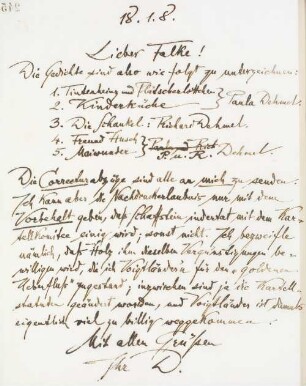 18.1.8.
Lieber Falke!
Die Gedichte sind also wie folgt zu unterzeichnen:
1. Tintenheinz und Plätscherlottchen
2. Kinderküche } Paula Dehmel
3. Die Schaukel: Richard Dehmel
4. Freund Husch
5. Maiwunder } P. u. R. Dehmel
Die Correcturabzüge sind alle an mich zu senden.
Ich kann aber die Nachdruckerlaubnis nur mit dem
Vorbehalt geben, daß Schafstein indertat mit dem Kar-
tellkomitee einig wird, sonst nicht. Ich bezweifle
nämlich, daß Holz ihm dieselben Vergünstigungen be-
willigen wird, die ich Voigtländern für den "goldenen
zugestand; inzwischen sind ja die Kartell-
statuten geändert worden, und Voigtländer ist damals
eigentlich viel zu billig weggekommen.
Mit allen Grüßen
Ihr D.